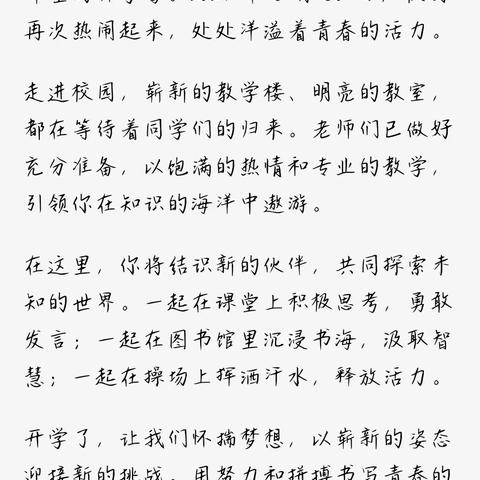 再次热闹起来，处处洋溢着青春的活力。
走进校园，崭新的教学楼、明亮的教室，
都在等待着同学们的归来。老师们已做好
充分准备，以饱满的热情和专业的教学，
引领你在知识的海洋中遨游。
在这里，你将结识新的伙伴，共同探索未
知的世界。一起在课堂上积极思考，勇敢
发言；一起在图书馆里沉浸书海，汲取智
慧；一起在操场上挥洒汗水，释放活力。
开学了，让我们怀揣梦想，以崭新的姿态
迎接新的挑战，用努力和拼搏书写青春的